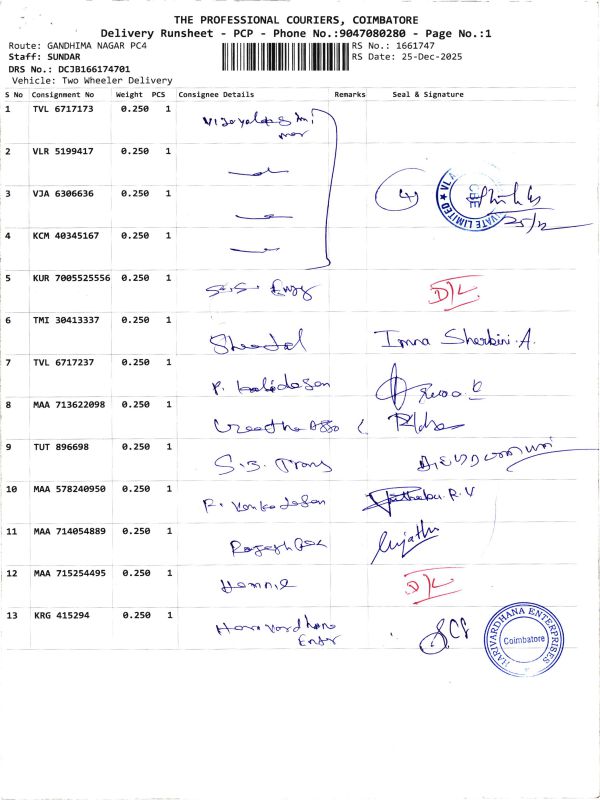 THE PROFESSIONAL COURIERS, COIMBATORE
Delivery Runsheet - PCP - Phone No.:9047080280 - Page No.:1
Route: GANDHIMA NAGAR PC4 RS No.: 1661747
Staff: SUNDAR RS Date: 25-Dec-2025
DRS No.: DCJB166174701
Vehicle: Two Wheeler Delivery
S No Consignment No Weight PCS Consignee Details Remarks Seal & Signature
1 TVL 6717173 0.250 1
2 VLR 5199417 0.250 1
3 VJA 6306636 0.250 1 4
PRIVATE LIMITED CBE
25/12
4 KCM 40345167 0.250 1
5 KUR 7005525556 0.250 1 S.S. Engg D/L
6 TMI 30413337 0.250 1 Imna Sherbini.A.
7 TVL 6717237 0.250 1 P. Kalidasan
8 MAA 713622098 0.250 1
9 TUT 896698 0.250 1 S.B. Trans
10 MAA 578240950 0.250 1 R. Venkadesan R.V
11 MAA 714054889 0.250 1
12 MAA 715254495 0.250 1 D/L
13 KRG 415294 0.250 1 Harivardhana
Enter
HARIVARDHANA ENTERPRISES
Coimbatore